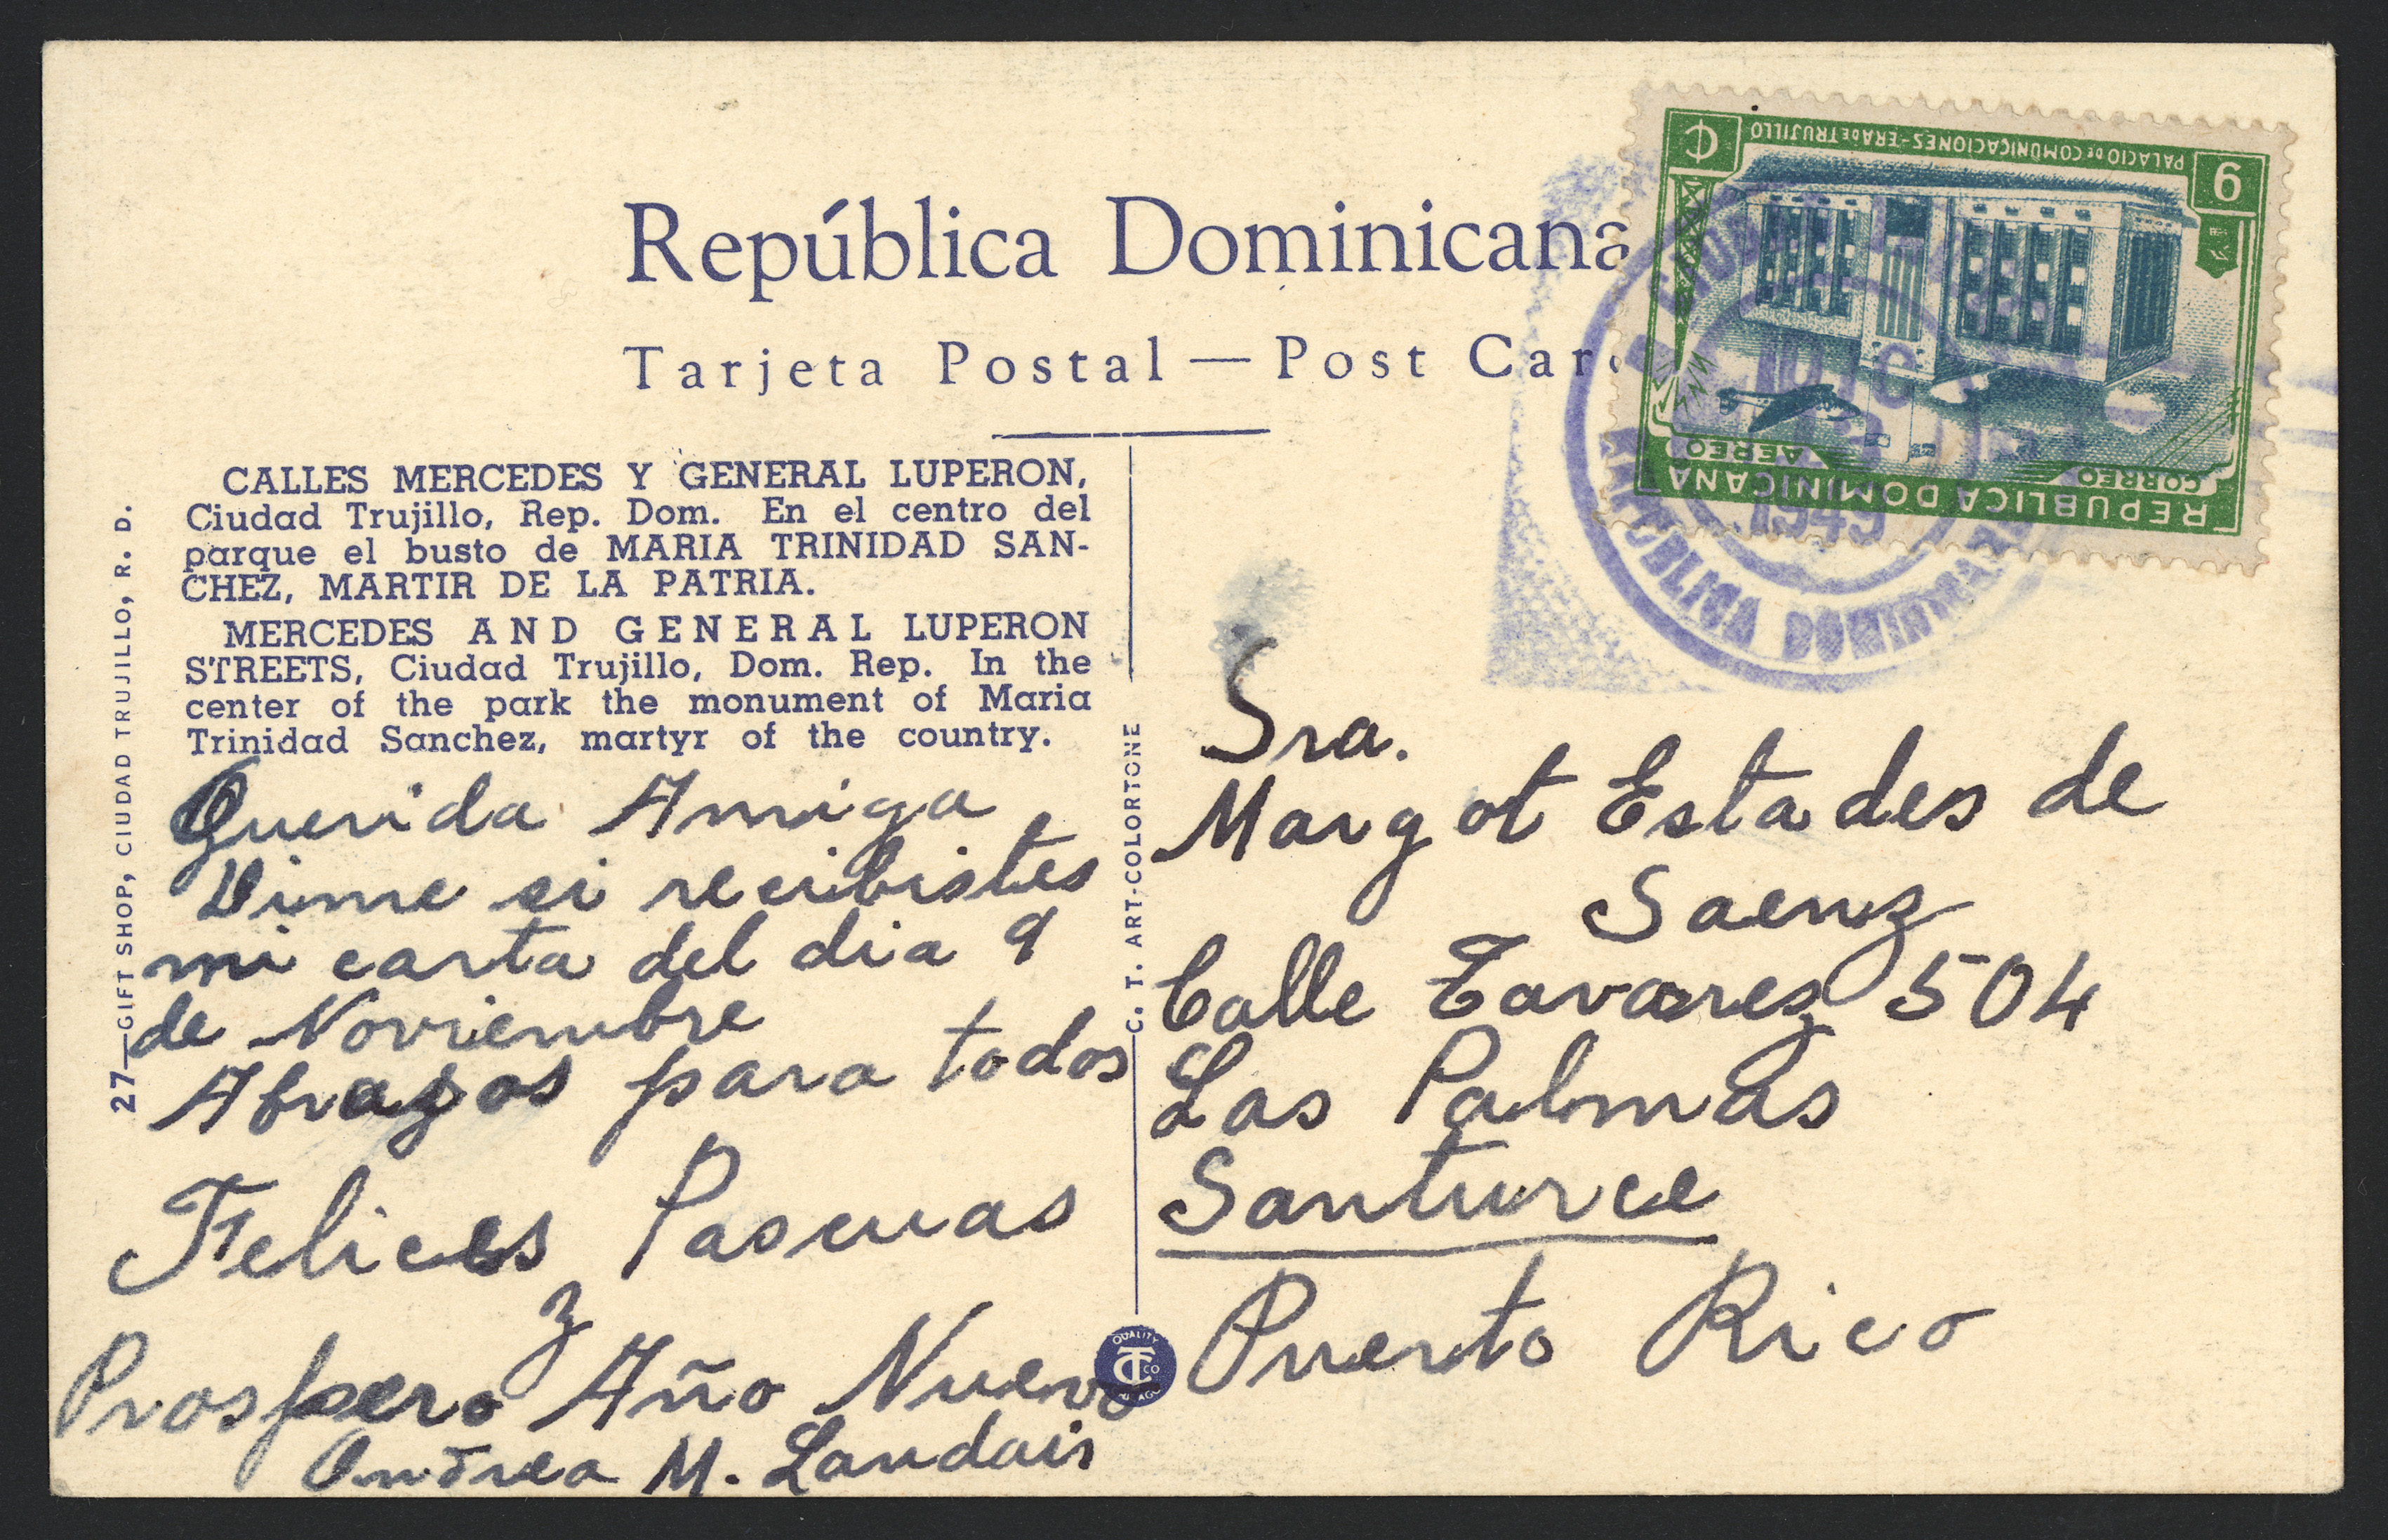 República Dominicana
Tarjeta Postal — Post Car
CALLES MERCEDES Y GENERAL LUPERON,
Ciudad Trujillo, Rep. Dom. En el centro del
parque el busto de MARIA TRINIDAD SAN-
CHEZ, MARTIR DE LA PATRIA.
MERCEDES AND GENERAL LUPERON
STREETS, Ciudad Trujillo, Dom. Rep. In the
center of the park the monument of Maria
Trinidad Sanchez, martyr of the country.
27—GIFT SHOP, CIUDAD TRUJILLO, R. D.
Querida Amiga
Dime si recibistes
mi carta del dia 9
de Noviembre
Abrazos para todos
Felices Pascuas
y
Prospero Año Nuevo
Andrea M. Landais
C. T. ART-COLORTONE
QUALITY
CT CO
PALACIO DE COMUNICACIONES-ERA DE TRUJILLO
9 ₵
CORREO AEREO
REPUBLICA DOMINICANA
1949
REPUBLICA DOMINICANA
Sra.
Margot Estades de
Saenz
Calle Tavarez 504
Las Palmas
Santurce
Puerto Rico